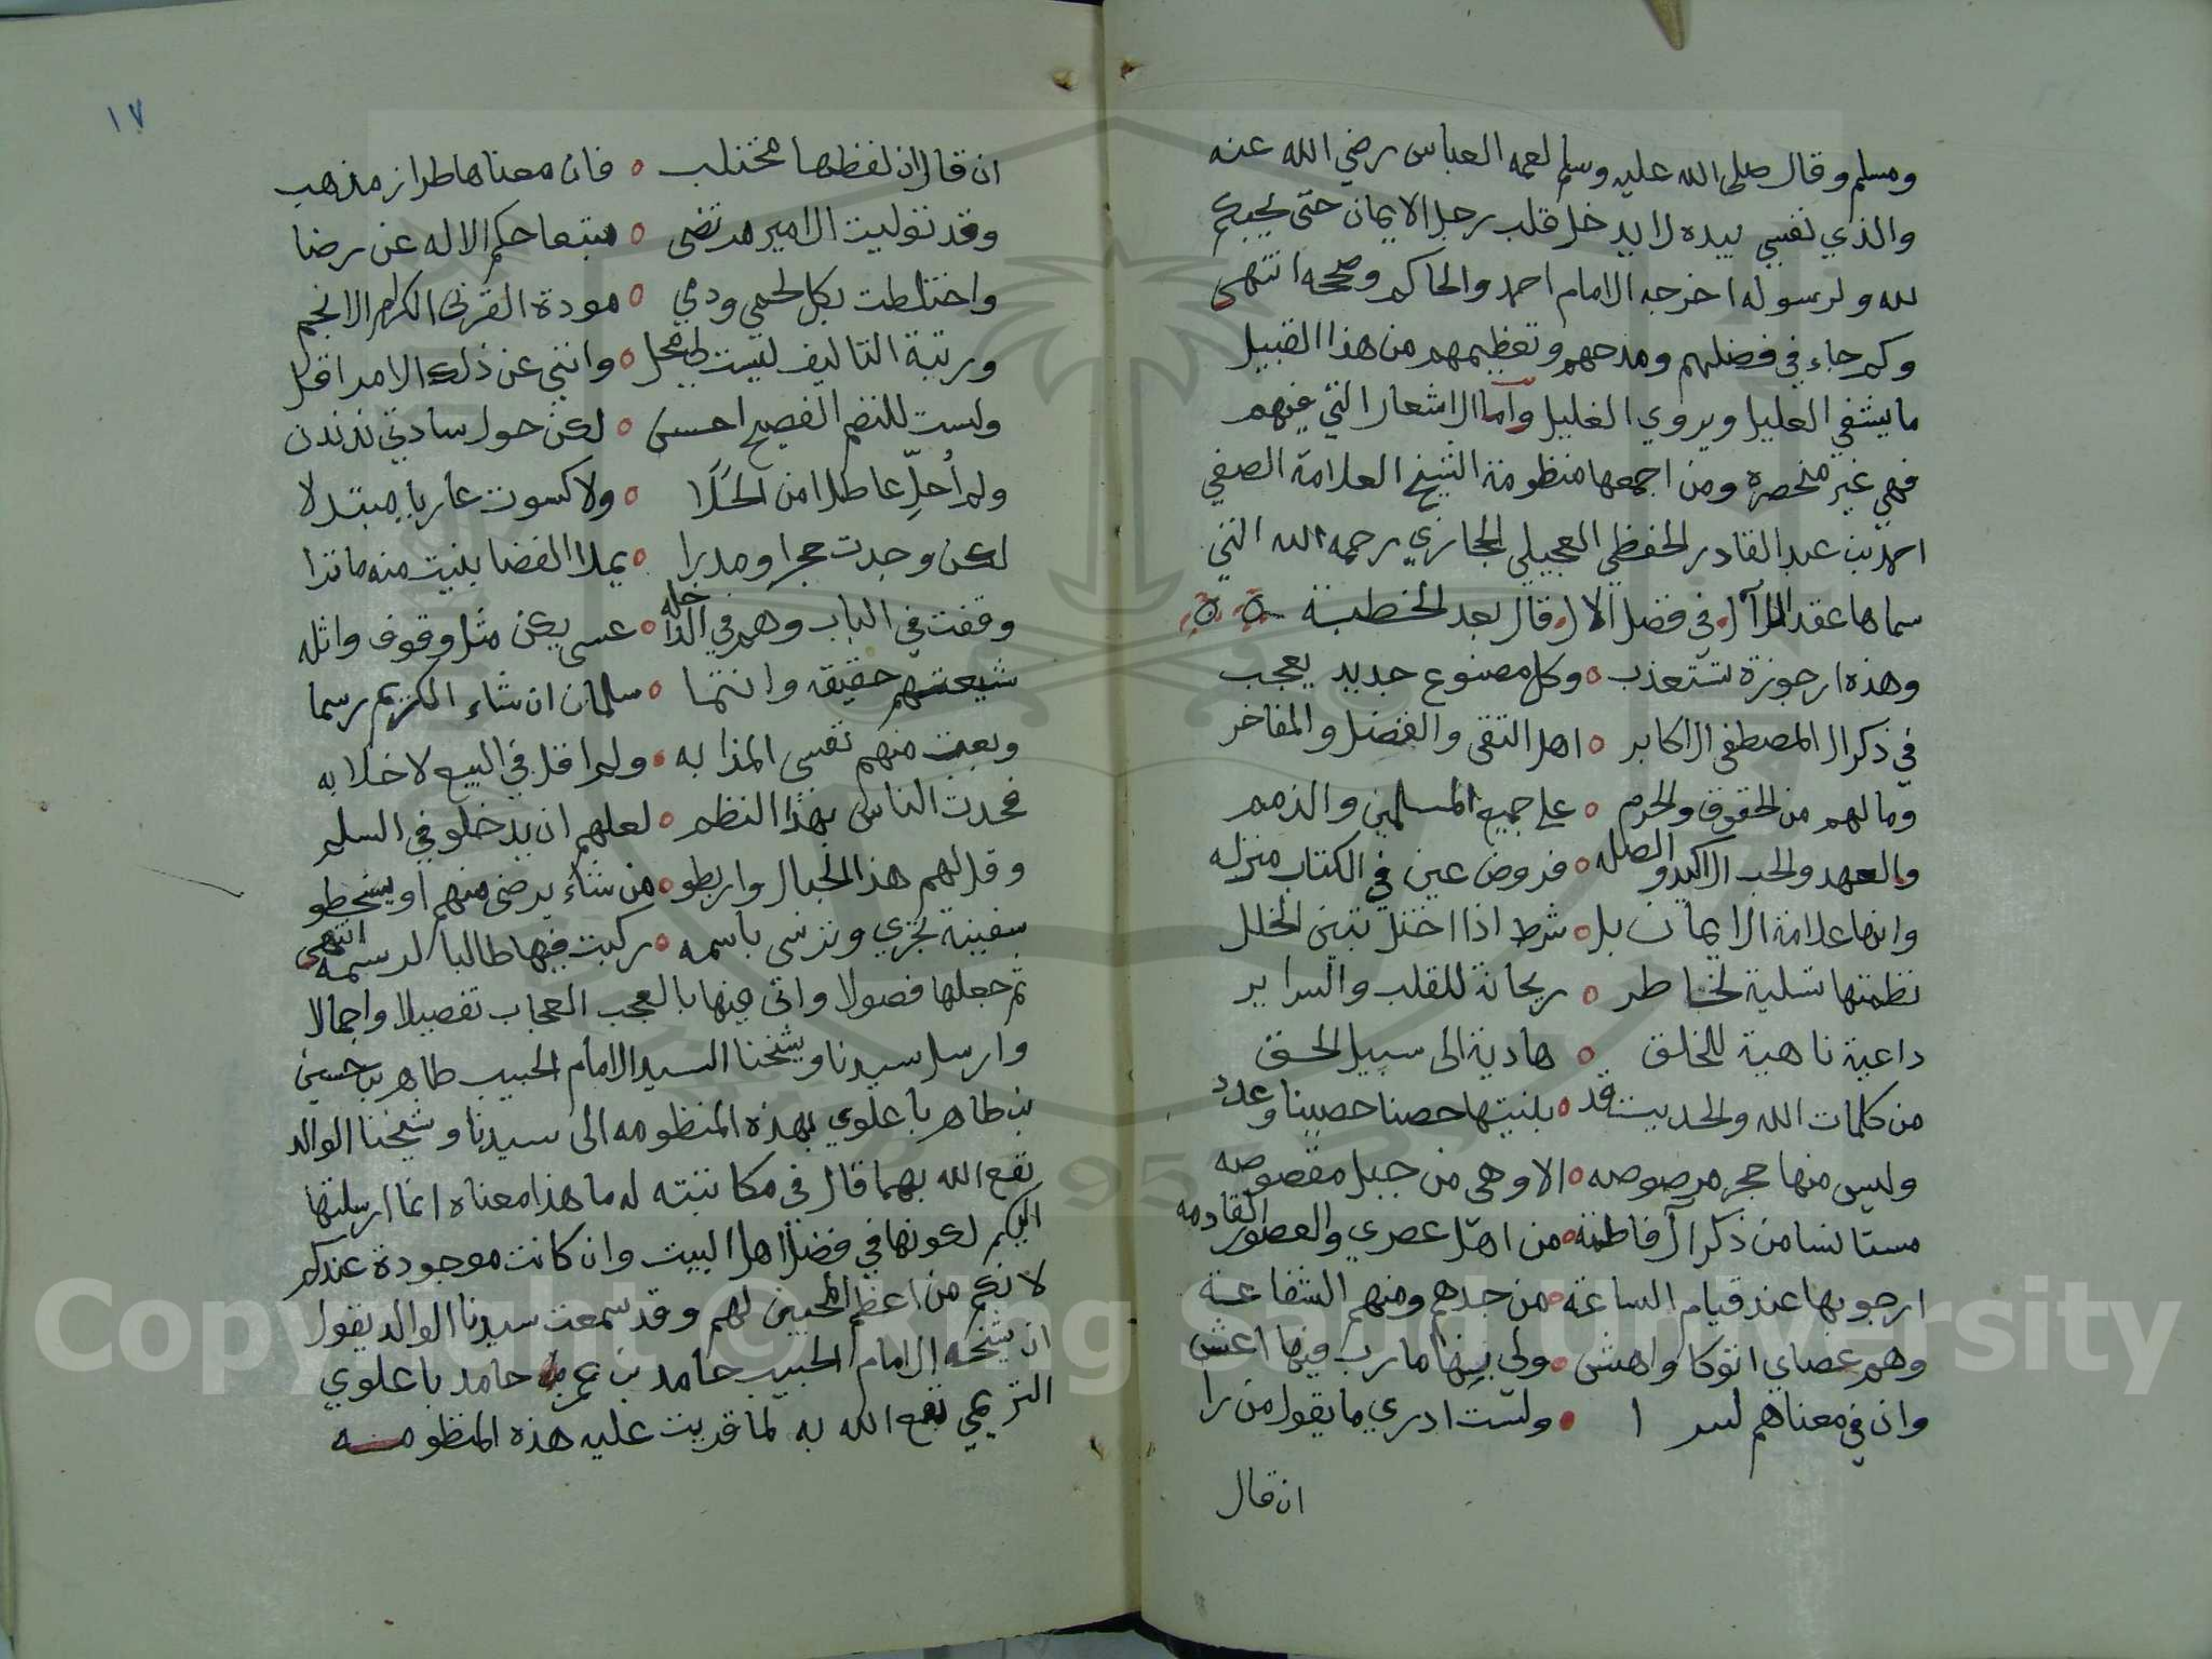 ومسلم وقال صلى الله عليه وسلم لعمه العباس رضي الله عنه
والذي نفسي بيده لا يدخل قلب رجل الايمان حتى يحبكم
لله ولرسوله اخرجه الامام احمد والحاكم وصححه انتهى
وكم جاء في فضلهم ومدحهم وتعظيمهم من هذا القبيل
ما يشفي العليل ويروي الغليل وأما الاشعار التي فيهم
فهي غير منحصره ومن اجمعها منظومة الشيخ العلامة الصفي
احمد بن عبد القادر الحفظي العجيلي الحجازي رحمه الله التي
سماها عقد اللآل في فضل الال قال بعد الخطبة
وهذه ارجوزة تستعذب ٥ وكل مصنوع جديد يعجب
في ذكر ال المصطفى الاكابر ٥ اهل التقى والفضل والمفاخر
وما لهم من الحقوق والحرم ٥ على جميع المسلمين والذمم
والعهد والحب الاكيد والصله ٥ فروض عين في الكتاب منزله
وانها علامة الايمان بل ٥ شرط اذا اختل تبين الخلل
نظمتها تسلية لخاطر ٥ ريحانة للقلب والسراير
داعية ناهية للخلق ٥ هادية الى سبيل الحق
من كلمات الله والحديث قد ٥ بنيتها حصنا حصينا وعدد
وليس منها حجر مرصوصه ٥ الا وهي من جبل مقصوصه
مستانسا من ذكر آل فاطمة ٥ من اهل عصري والعصور القادمه
ارجو بها عند قيام الساعة ٥ من جدهم ومنهم الشفاعة
وهم عصاي اتوكا واهش ٥ ولي بها مارب فيها اعش
وان في معناهم لسرا ٥ ولست ادري ما يقول من را
ان قال
١٧
ان قال ان لفظها مختلب ٥ فان معناها طراز مذهب
وقد توليت الامير مرتضى ٥ متبعا حكم الاله عن رضا
واختلطت بكل لحمي ودمي ٥ مودة القربى الكرام الانجم
ورتبة التاليف ليست لي محل ٥ وانني عن ذلك الامر اقل
ولست للنظم الفصيح احسن ٥ لكن حول سادتي ندندن
ولم أحلِّ عاطلا من الحَلَا ٥ ولا كسوت عاريا مبتدلا
لكن وجدت حجرا ومدرا ٥ يملا الفضا بنيت منه ما ترا
وقفت في الباب وهم في الداخله ٥ عسى يكن مثل وقوف واثله
شيعتهم حقيقه وانتما ٥ سلمان ان شاء الكريم رسما
وبعت منهم نفسي المذابه ٥ ولم اقل في البيع لا خلابه
فحدث الناس بهذا النظم ٥ لعلهم ان يدخلو في السلم
وقل لهم هذا الحبال واربطو ٥ من شاء يرضى منهم او يسخطو
سفينة تجري وترسي باسمه ٥ ركبت فيها طالبا لرسمه انتهى
ثم جعلها فصولا واتى فيها بالعجب العجاب تفصيلا واجمالا
وارسل سيدنا وشيخنا السيد الامام الحبيب طاهر بن حسين
بن طاهر باعلوي بهذه المنظومه الى سيدنا وشيخنا الوالد
نفع الله بهما قال في مكاتبته له ما هذا معناه انما ارسلتها
اليكم لكونها في فضل اهل البيت وان كانت موجودة عندكم
لانكم من اعظم المحبين لهم وقد سمعت سيدنا الوالد يقول
ان شيخه الامام الحبيب حامد بن عمر بن حامد باعلوي
التريمي نفع الله به لما قريت عليه هذه المنظومه
Copyright © King Saud University